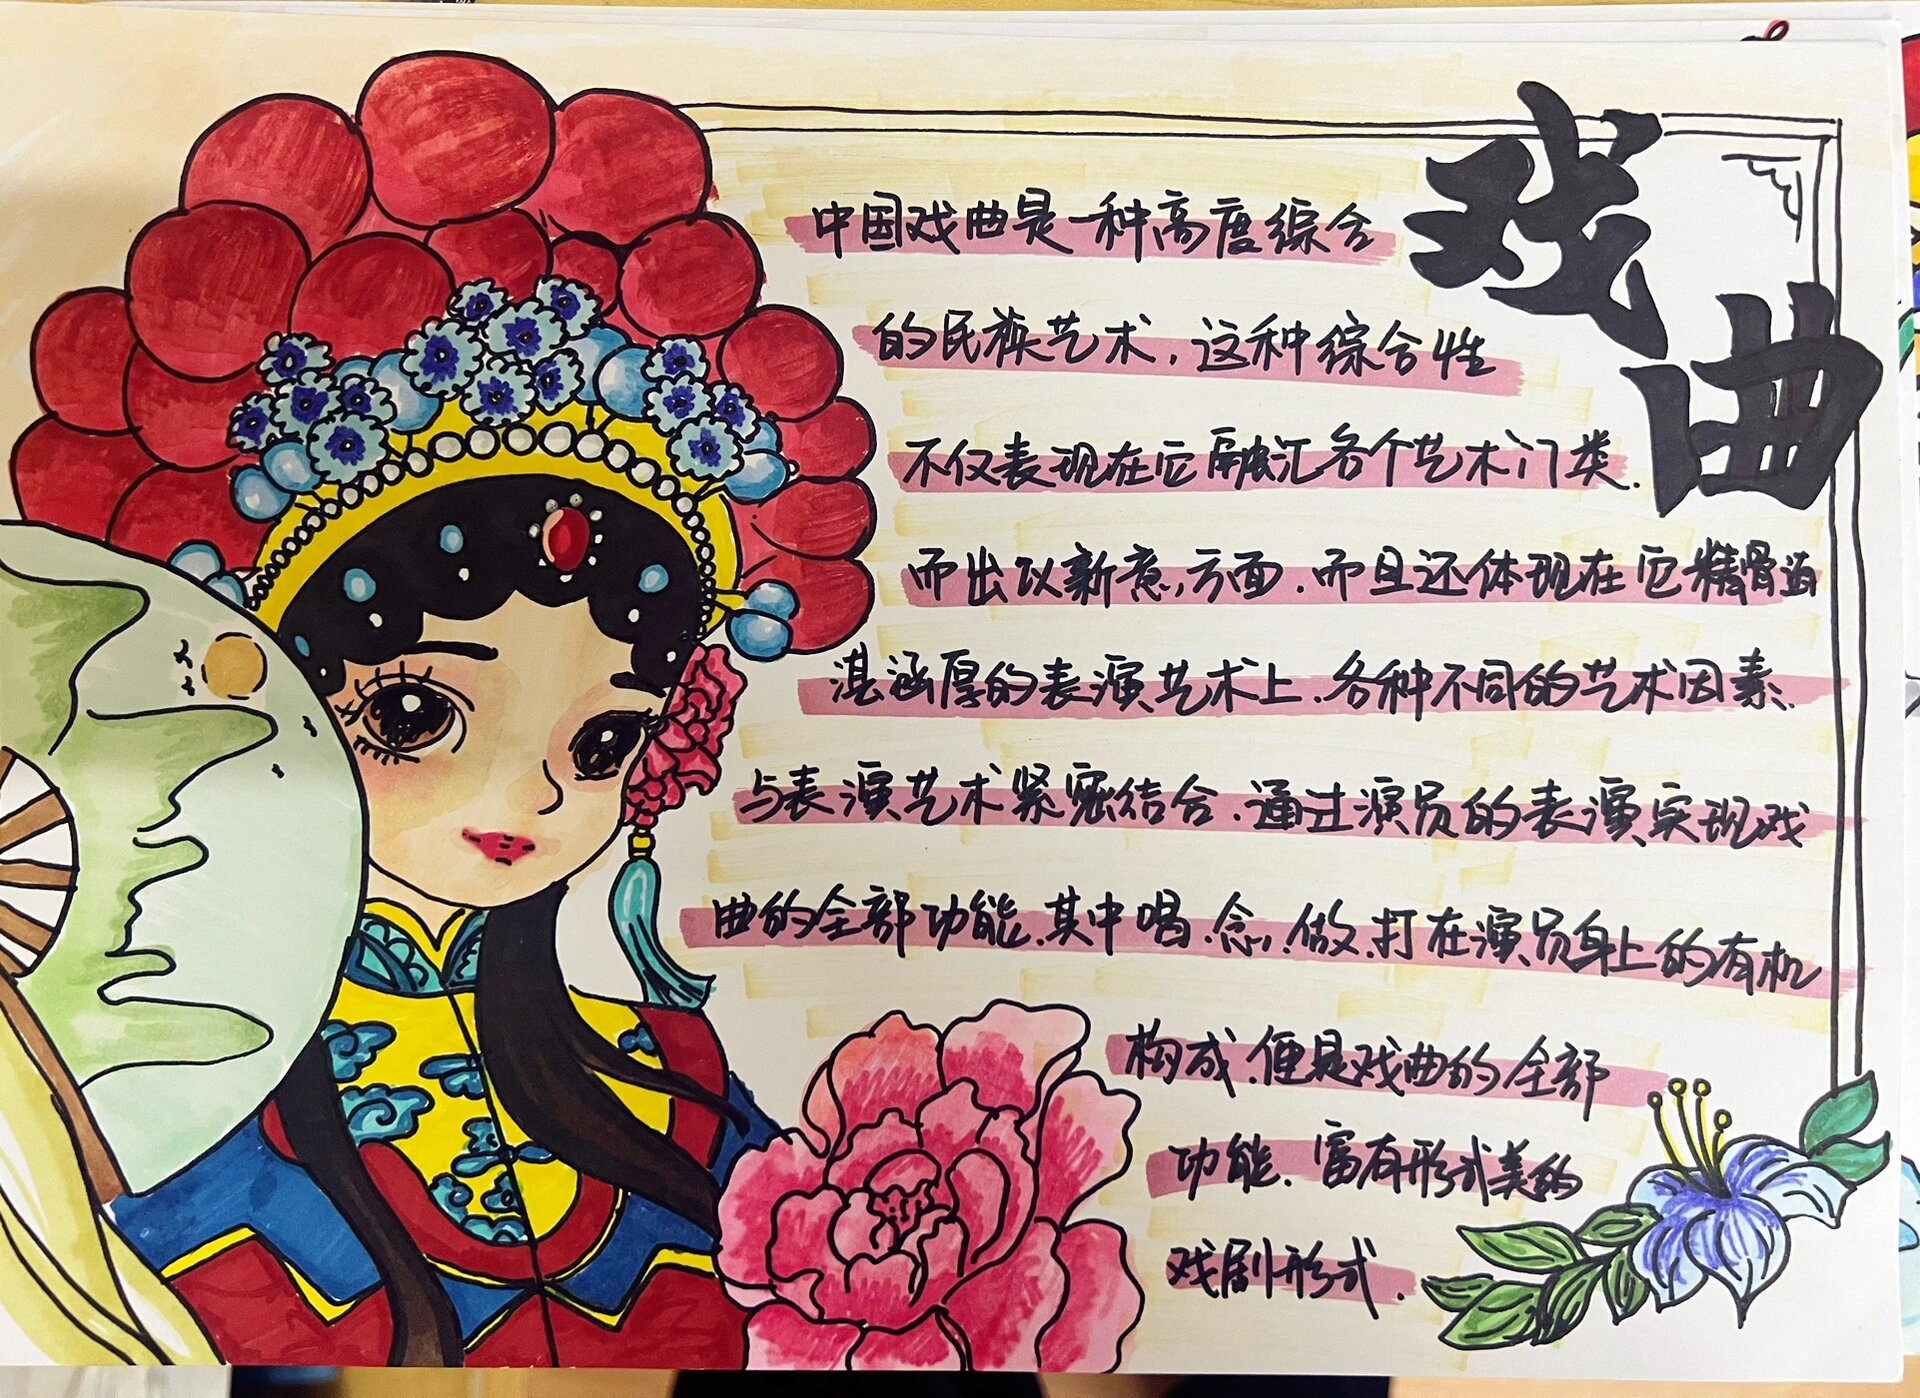 戏曲
中国戏曲是一种高度综合
的民族艺术，这种综合性
不仅表现在它融汇各个艺术门类.
而出以新意,方面.而且还体现在它精骨当
湛涵厚的表演艺术上.各种不同的艺术因素.
与表演艺术紧密结合.通过演员的表演实现戏
曲的全部功能.其中唱.念.做.打在演员身上的有机
构成.便是戏曲的全部
功能.富有形式美的
戏剧形式.